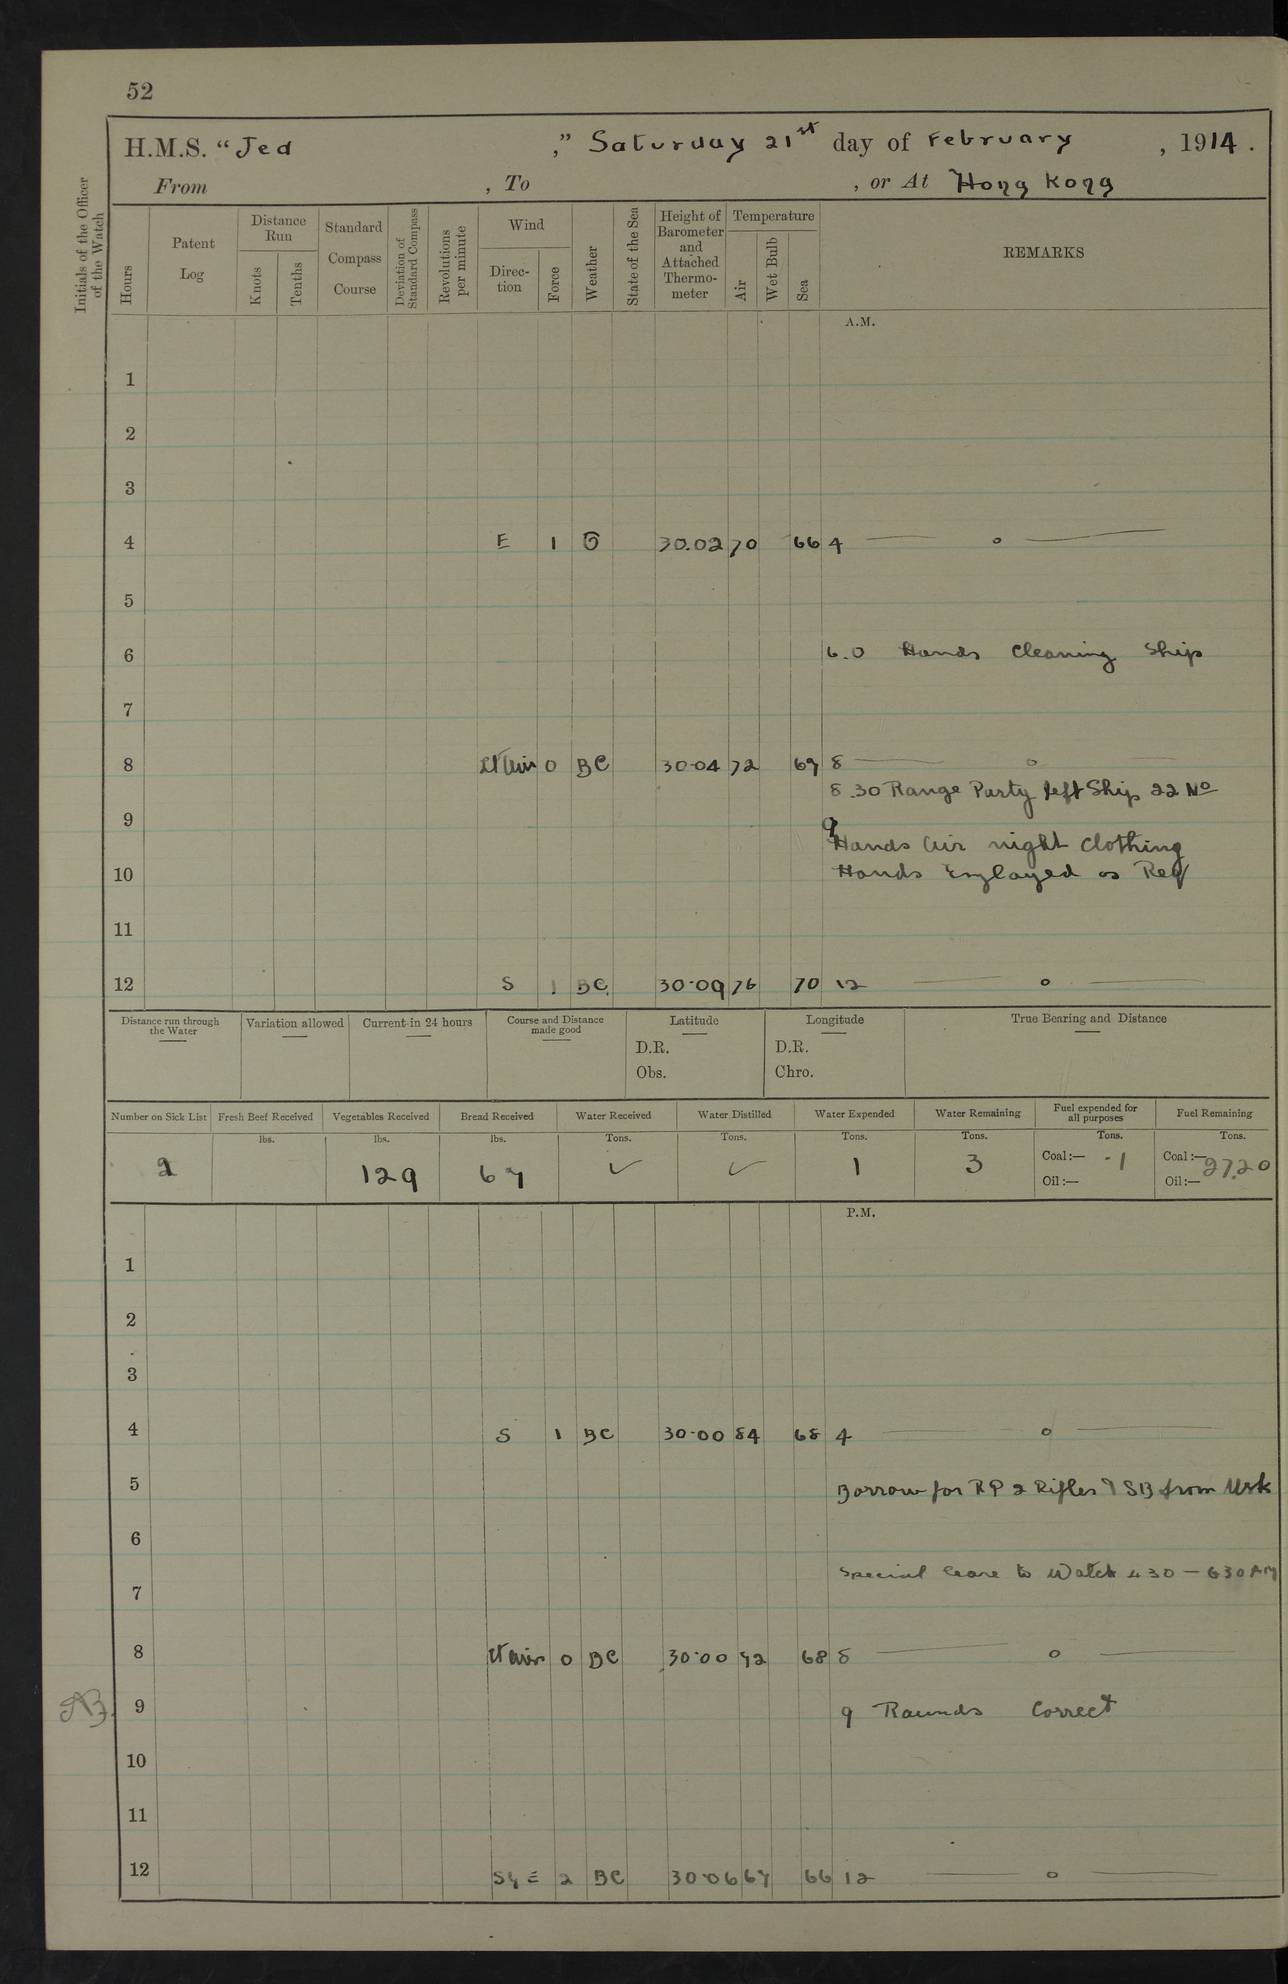 52
H.M.S. "Jed ," Saturday 21st day of February , 1914 .
From , To , or At Hong Kong
Initials of the Officer of the Watch
Hours
Patent Log
Distance Run
Knots
Tenths
Standard Compass Course
Deviation of Standard Compass
Revolutions per minute
Wind
Direc-tion
Force
Weather
State of the Sea
Height of Barometer and Attached Thermo-meter
Temperature
Air
Wet Bulb
Sea
REMARKS
A.M.
1
2
3
4 E 1 30.02 70 66 4 — o —
5
6 6.0 Hands Cleaning Ship
7
8 Lt Airs 0 BC 30.04 72 69 8 — o —
8.30 Range Party left Ship 22 No
9 9
Hands Air night clothing
10 Hands Employed as Req
11
12 S 1 BC 30.09 76 70 12 — o —
Distance run through the Water
Variation allowed
Current in 24 hours
Course and Distance made good
Latitude
D.R.
Obs.
Longitude
D.R.
Chro.
True Bearing and Distance
Number on Sick List
2
Fresh Beef Received
lbs.
Vegetables Received
lbs.
129
Bread Received
lbs.
67
Water Received
Tons.
✓
Water Distilled
Tons.
✓
Water Expended
Tons.
1
Water Remaining
Tons.
3
Fuel expended for all purposes
Tons.
Coal :— .1
Oil :—
Fuel Remaining
Tons.
Coal :— 27.20
Oil :—
P.M.
1
2
3
4 S 1 BC 30.00 84 68 4 — o —
5 Borrow for RP 2 Rifles & SB from Usk
6
Special leave to Watch 4 30 — 6 30 AM
7
8 Lt Airs 0 BC 30.00 72 68 8 — o —
9 9 Rounds Correct
10
11
12 2 BC 30.06 67 66 12 — o —